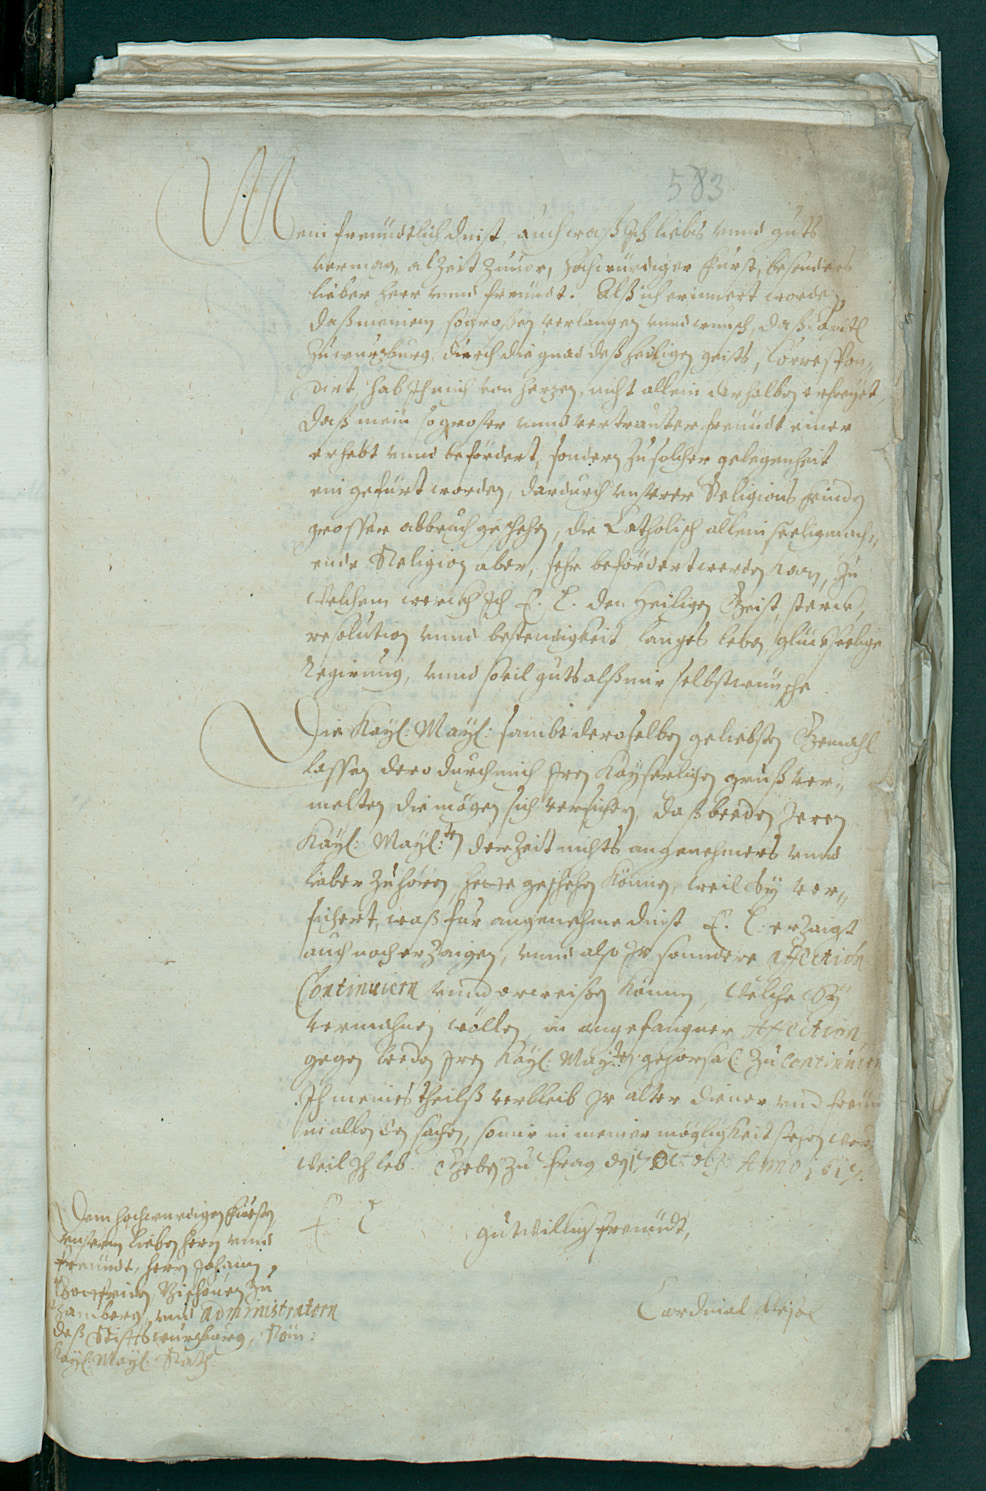 583
Mein freundtlich dinst, auch waß Ich liebs unnd guts
vermag, alzeit zuuor, hochwürdiger Fürst, besonders
lieber herr unnd freundt. Alß ich erinnert worden,
daß meinem so grossen verlangen unnd wunsch, daß Capitl
zu wurzburg, durch die gnad deß heiligen geists, Correspon-
dirt, hab Ich mich von herzen, nicht allein derhalben erfreyet,
daß mein so groser unnd vertrauter freundt einer
erhebt unnd befördert, sondern zu solcher gelegenheit
ein gefürt worden, dardurch unserer Religions feinden
grosser abbruch geschehen, die Catholisch allein seeligmach-
ende Religion aber, sehr befördert werden kan, zu
welchem wünsch Ich E. L. den heiligen Geist, sterck,
resolution unnd bestendigkeit, langes leben, glückseelige
Regirung, unnd souil guts alß mir selbst wünsche
Die Kayl: Mayl: sambt deroselben geliebsten Gemahl
lassen dero durch mich Iren Kayserlichen gruß ver-
melten, die mögen sich versichern, daß beeden Iren
Kayl: Mayl:ten der Zeit nichts angenehmers unnd
lieber zu hören hette geschehen können, weil Sy ver-
sichert, waß für angenehme dinst E. L. erzaigt
auch noch erzaigen, unnd also Ir sonndere affection
Continuiern unnd erweisen können, welche Sy
vermahnen wöllen, in angefangner Affection
gegen beeden Iren Kayl: Mayten gehorsa: zu continuiern
Ich meines theilß verbleib Ir alter diener und freundt
in allen den sachen, so mir in meiner mögligkeit stehen werd
weil Ich leb. Geben zu Prag den Octobr: Anno 1617.
E L gutwillig freundt,
Cardinal Klesel
Dem hochwürdigen Fürsten
unserm lieben herrn unnd
freundt, herrn Johann
Gottfriden, Bischouen zu
Bamberg, und Administratorn
deß Stiffts würzburg, Röm:
Kayl: Mayl: Rath.